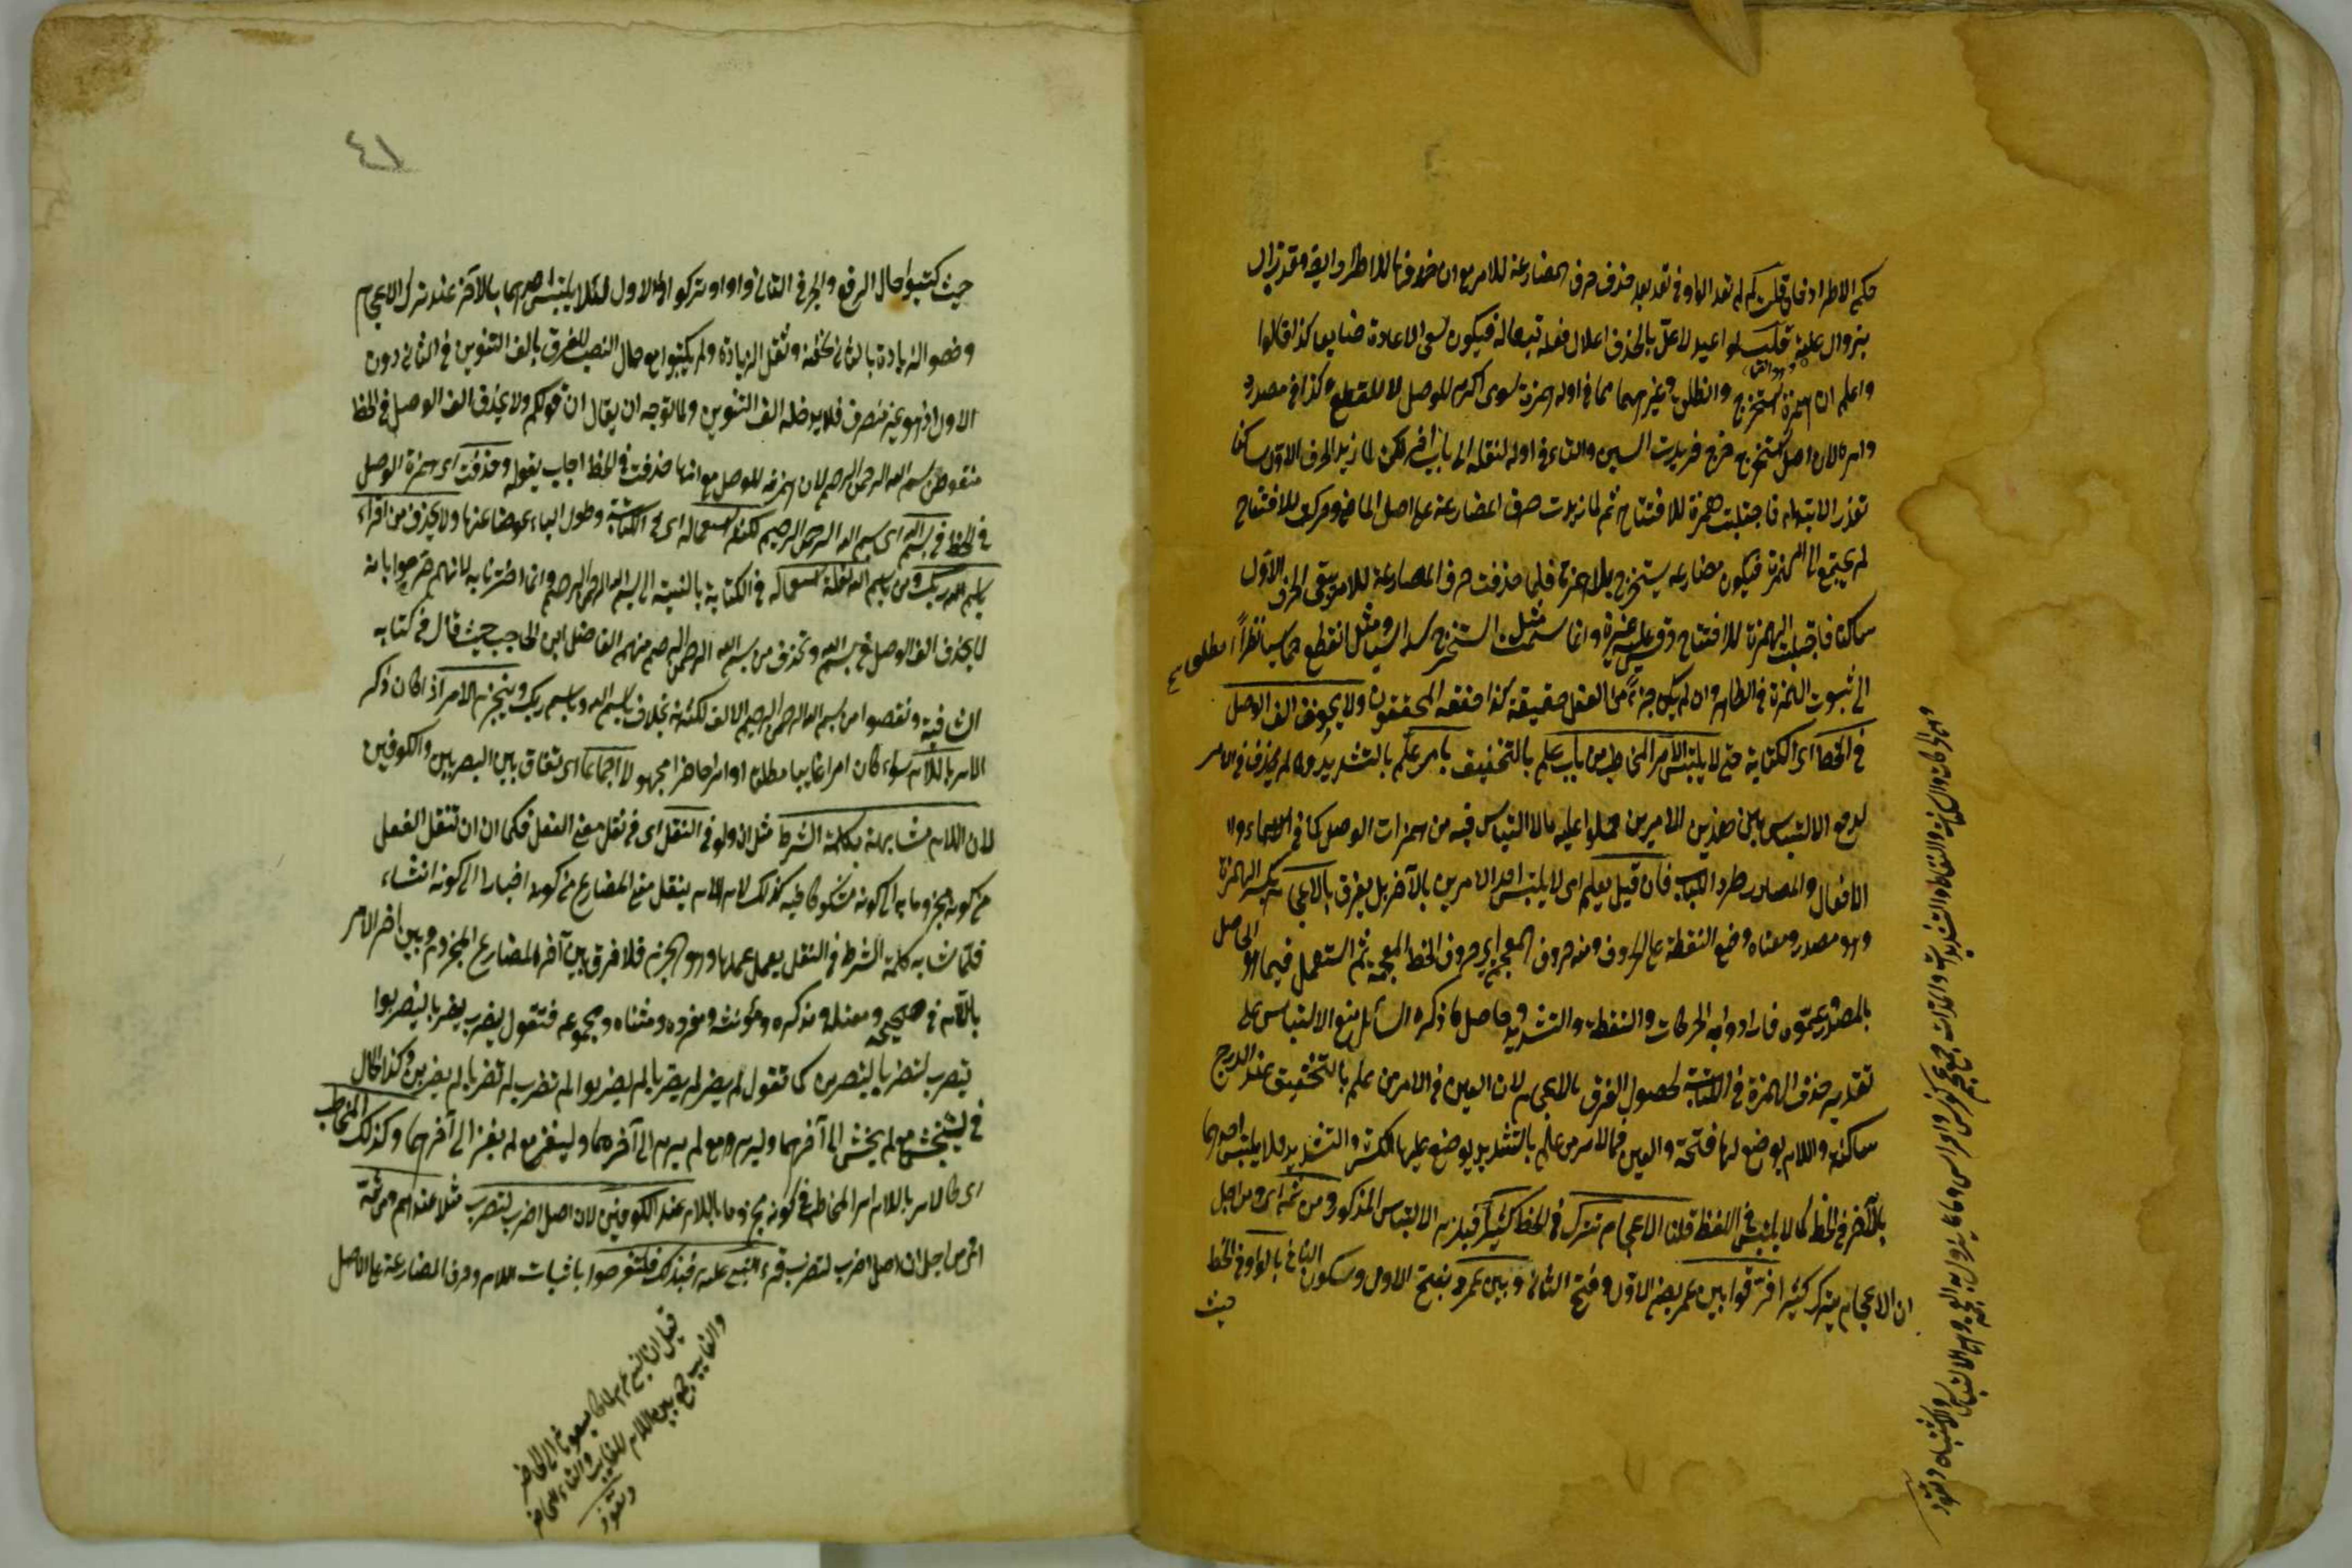 حكم الاطراد فان قلت لم لم تعد الواو في تعد بعد حذف حرف المضارعة للامر مع ان حذفها للاطراد ايضا وقد زال
بزوال علته قلت لو اعيد لاعل بالحذف اعلال فعله تبعا له فيكون السعي الاعادة ضايعا كذا قالوا
واعلم ان همزة استخرج وانطلق وغيرهما مما في اوله همزة سوى اكرم للوصل لا للقطع وكذا في مصدره
وامره لان اصل استخرج خرج فزيدت السين والتاء في اوله لنقله الى باب آخر لكن لما زيد الحرف الاول ساكنا
تعذر الابتداء فاجتلبت همزة للافتتاح ثم لما زيدت حرف المضارعة على اصل الماضي وحرك للافتتاح
لم يحتج الى الهمزة فيكون مضارعه يستخرج بلا همزة فلما حذفت حرف المضارعة للامر بقى الحرف الاول
ساكنا فاجتلبت الهمزة للافتتاح وقس عليه غيره وانما سميت مثل استخرج سداسيا ومثل انقطع خماسيا نظرا
الى ثبوت الهمزة في الظاهر وان لم يكن جزءً من الفعل حقيقة كذا حققه المحققون ولا يحذف الف الوصل
في الخط اى الكتابة حتى لا يلتبس الامر المخاطب من باب علم بالتخفيف بامر علّم بالتشديد ولما لم يحذف في الامر
لدفع الالتباس بين هذين الامرين حملوا عليه مالا التباس فيه من همزات الوصل كما في الاسماء و
الافعال والمصادر طردا للباب فان قيل يعلم اى لا يلتبس احد الامرين بالآخر بل يفرق بالاعجام بكسر الهمزة
وهو مصدر ومعناه وضع النقطة على الحروف ومنه حروف المعجم اى حروف الخط المعجمة ثم استعمل فيما هو الحاصل
بالمصدر فارادوا به الحركات والنقطة والتشديد وحاصل ما ذكره السائل منع الالتباس على
تقدير حذف الهمزة في الكتابة لحصول الفرق بالاعجام لان العين في الامر من علم بالتخفيف عند الدرج
ساكنة واللام يوضع لها فتحة والعين في الامر من علّم بالتشديد يوضع عليها الكسر والتشديد فلا يلتبس احدهما
بالآخر في الخط كما لا يلتبس في اللفظ قلنا الاعجام تترك في الخط كثيرا فيلزم الالتباس المذكور ومن ثمه اى ومن اجل
ان الاعجام يترك كثيرا فرقوا بين عمر بضم الاول وفتح الثاني وبين عمرو بفتح الاول وسكون الثاني بالواو في الخط
حيث
٤١
حيث كتبوا حال الرفع والجر في الثاني واوا وتركوا في الاول لئلا يلتبس احدهما بالآخر عند ترك الاعجام
وخصوا الزيادة بالثاني لخفته وثقل الزيادة ولم يكتبوا مع حال النصب للفرق بالف التنوين في الثاني دون
الاول اذ هو غير منصرف فلا يدخله الف التنوين ولما توجه ان يقال ان قولكم ولا يحذف الف الوصل في الخط
منقوض ببسم الله الرحمن الرحيم لان همزته للوصل مع انها حذفت في الخط اجاب بقوله وحذفت اى همزة الوصل
في الخط في بسم الله اى بسم الله الرحمن الرحيم لكثرة استعماله اى في الكتابة وطول الباء عوضا عنها ولا يحذف من اقرأ
باسم ربك ومن باسم الله لقلة استعماله في الكتابة بالنسبة الى بسم الله الرحمن الرحيم وانما اخترنا به لانهم صرحوا بانه
لا يحذف الف الوصل في بسم الله وتحذف من بسم الله الرحمن الرحيم منهم الفاضل ابن الحاجب حيث قال في كتابه
الشافية ونقصوا من بسم الله الرحمن الرحيم الالف لكثرته بخلاف باسم الله وباسم ربك وينجزم الامر اذا كان ذكر
الامر باللام سواء كان امرا غايبا مطلقا او امرا حاضرا مجهولا اجماعا اى اتفاق بين البصريين والكوفيين
لان اللام مشابهة بكلمة الشرط مثل ان ولو في النقل اى في نقل معنى الفعل فكما ان ان تنقل الفعل
من كونه مجزوما به الى كونه مشكوكا فيه كذلك لام الامر ينقل معنى المضارع من كونه اخبارا الى كونه انشاء
فلما شابه كلمة الشرط في النقل يعمل عملها وهو الجزم فلا فرق بين آخر المضارع المجزوم وبين آخر الامر
باللام في صحيحه ومعتله ومذكره ومؤنثه ومفرده ومثناه ومجموعه فتقول ليضرب ليضربا ليضربوا
لتضرب لتضربا ليضربن كما تقول لم يضرب لم يضربا لم يضربوا لم تضرب لم تضربا لم يضربن وكذا الحال
في ليخش مع لم يخش الى آخرهما وليرم مع لم يرم الى آخرهما وليغز مع لم يغز الى آخرهما وكذلك المخاطب
اى كالامر باللام امر المخاطب في كونه مجزوما باللام عند الكوفيين لان اصل اضرب لتضرب مثلا عندهم ومن ثمة
اى من اجل ان اصل اضرب لتضرب قرء النبي عليه فبذلك فلتفرحوا باثبات اللام وحرف المضارعة على الاصل